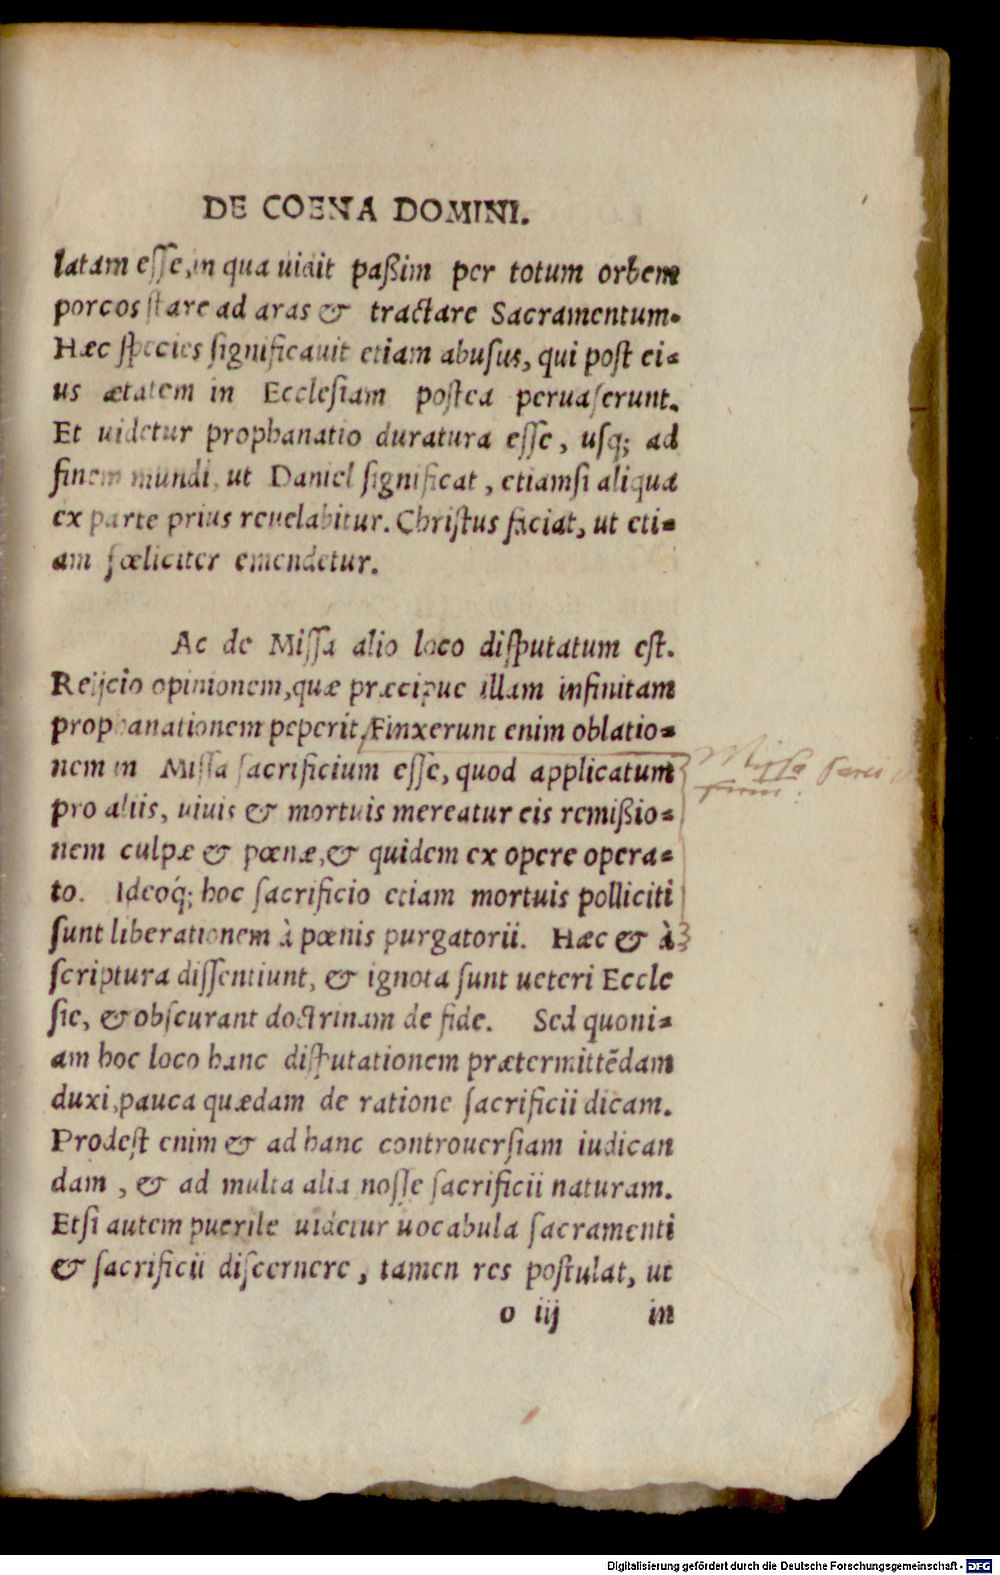 DE COENA DOMINI.
latam esse, in qua uidit paßim per totum orbem
porcos stare ad aras & tractare Sacramentum.
Hæc species significauit etiam abusus, qui post ei-
us ætatem in Ecclesiam postea peruaserunt.
Et uidetur prophanatio duratura esse, usq; ad
finem mundi, ut Daniel significat, etiamsi aliqua
ex parte prius reuelabitur. Christus faciat, ut eti-
am fœliciter emendetur.
Ac de Missa alio loco disputatum est.
Reijcio opinionem, quæ præcipue illam infinitam
prophanationem peperit, Finxerunt enim oblatio-
nem in Missa sacrificium esse, quod applicatum
pro aliis, uiuis & mortuis mereatur eis remißio-
nem culpæ & pœnæ, & quidem ex opere opera-
to. Ideoq́; hoc sacrificio etiam mortuis polliciti
sunt liberationem à pœnis purgatorii. Hæc & à
scriptura dissentiunt, & ignota sunt ueteri Eccle
sie, & obscurant doctrinam de fide. Sed quoni-
am hoc loco hanc disputationem prætermittēdam
duxi, pauca quædam de ratione sacrificii dicam.
Prodest enim & ad hanc controuersiam iudican
dam, & ad multa alia nosse sacrificii naturam.
Etsi autem puerile uidetur uocabula sacramenti
& sacrificii discernere, tamen res postulat, ut
o iij in
Missa
Digitalisierung gefördert durch die Deutsche Forschungsgemeinschaft - DFG